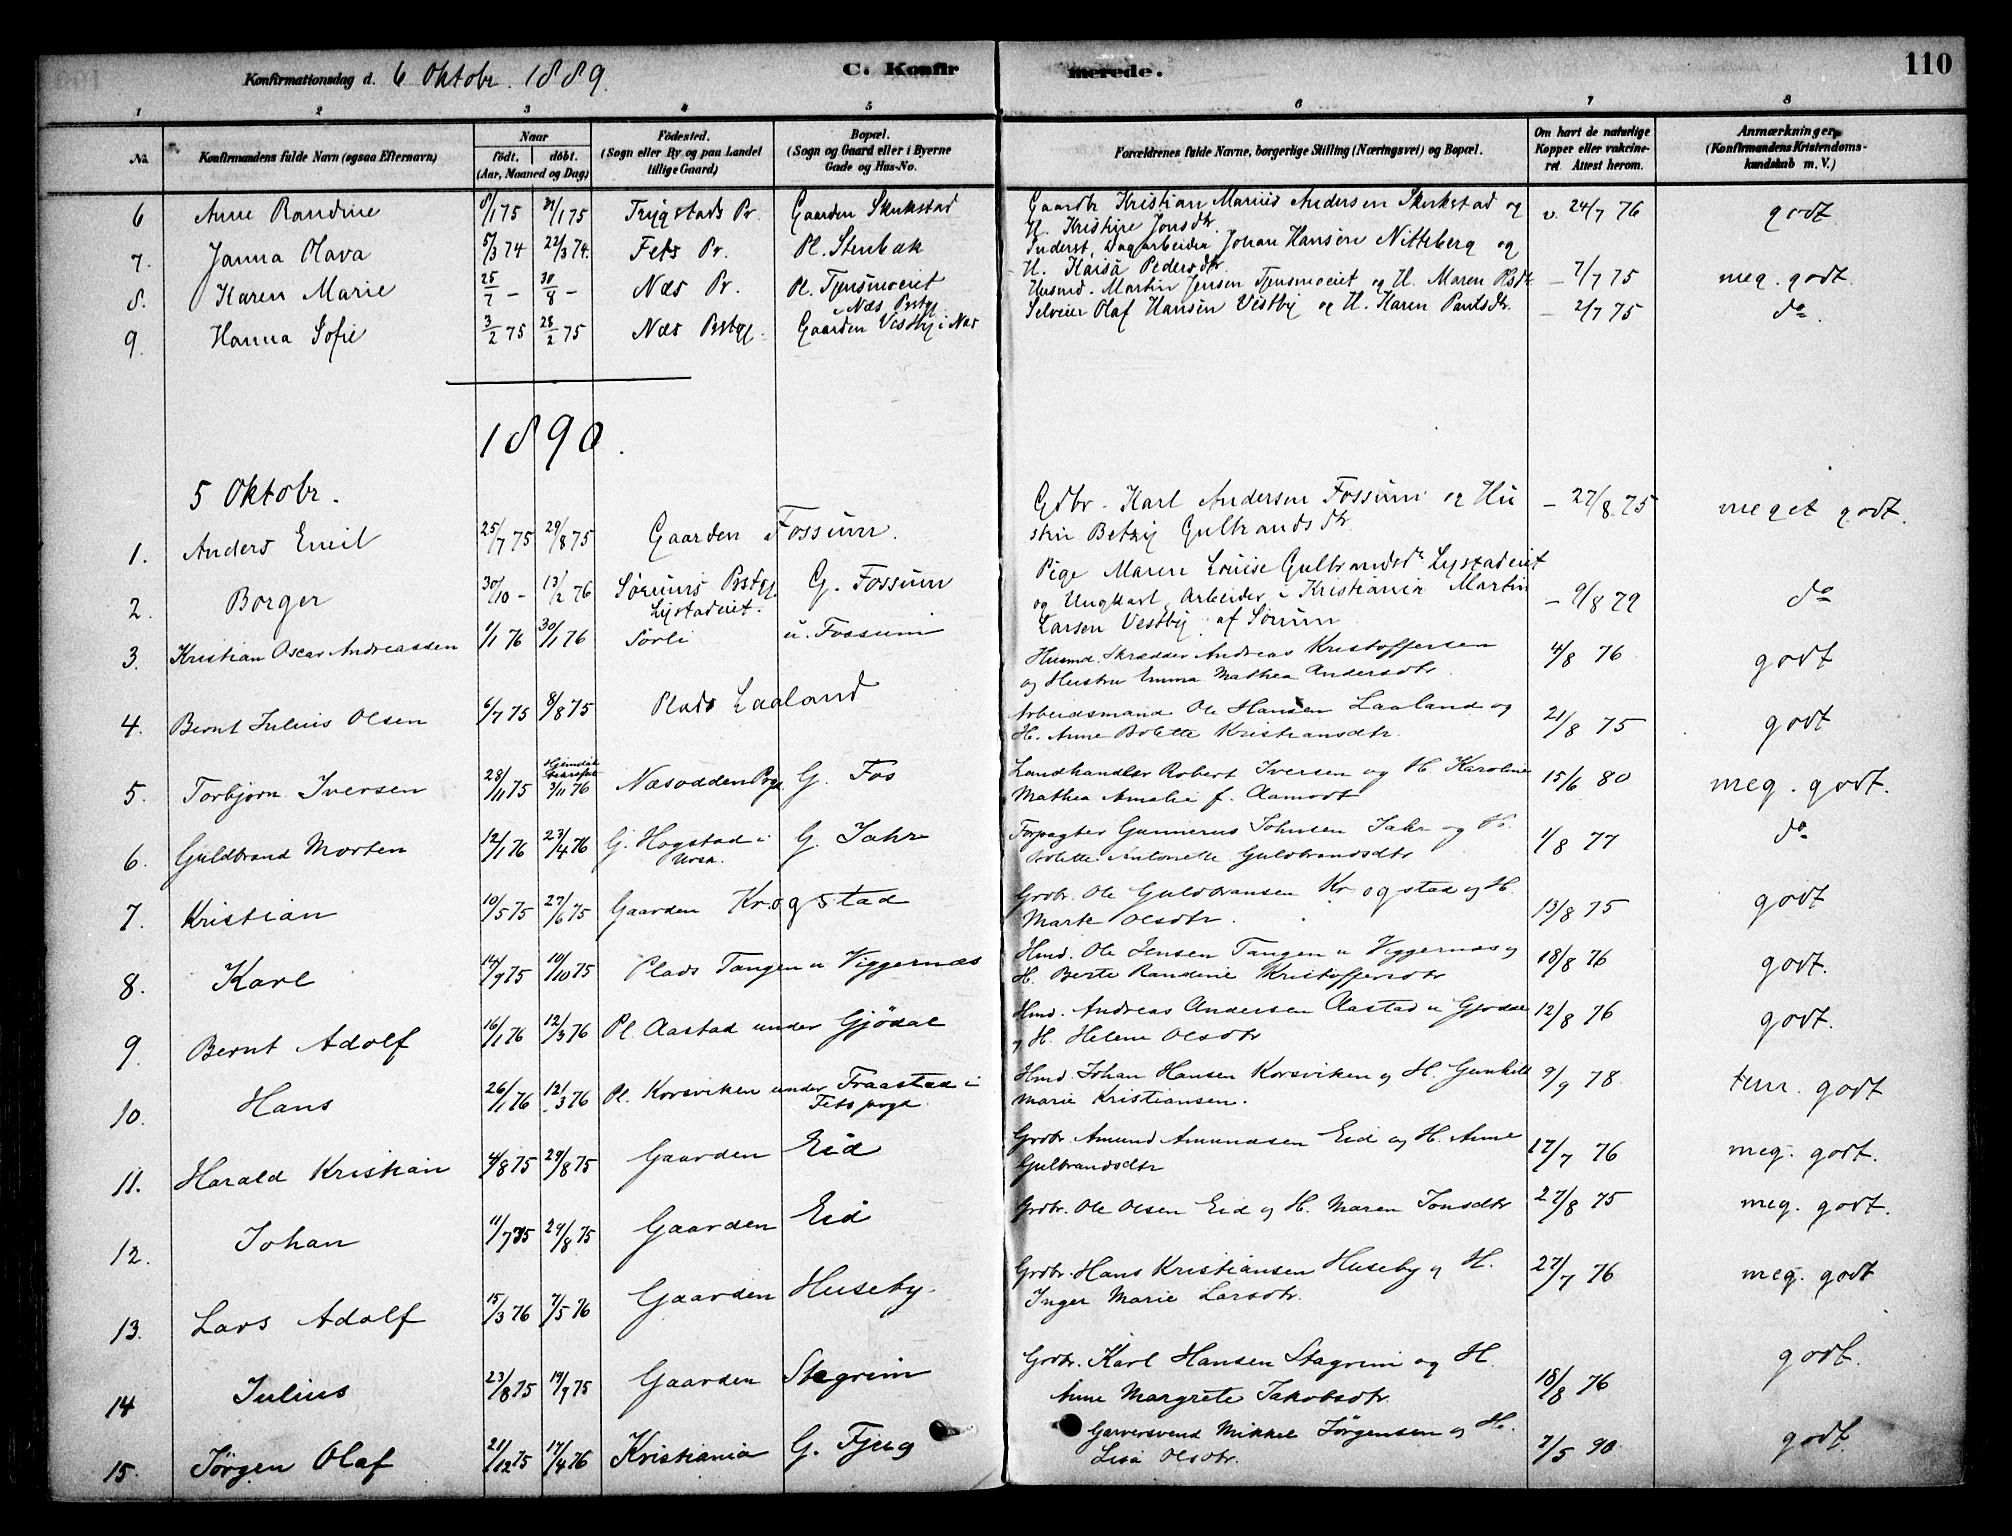 Konfirmationsdag d. 6 Oktobr. 1889. C. Konfirmerede. 110
1 2 3 4 5 6 7 8
No. Konfirmandens fulde Navn (ogsaa Efternavn) Naar født. døbt. (Aar, Maaned og Dag) Födested. (Sogn eller By og paa Landet tillige Gaard) Bopæl. (Sogn og Gaard eller i Byerne Gade og Hus-No. Forældrenes fulde Navne, borgerlige Stilling (Næringsvei) og Bopæl. Om havt de naturlige Kopper eller vakcineret Attest herom. Anmærkninger. (Konfirmandens Kristendomskundskab m. V.)
6 Anne Randine 8/1 75 31/1 75 Trygstads Pr. Gaarden Skukstad Gaardbr Kristian Marius Andersen Skukstad og
H. Kristine Jonsdtr. v. 24/7 76 godt
7. Janna Olava 5/3 74 22/3 74. Fets Pr. Pl. Stenbæk Inderst, Dagarbeider Johan Hansen Nitteberg og
H. Kaisa Pedersdtr. – 7/7 75 meg. godt.
8. Karen Marie 25/7 – 30/8 – Næs Pr. Pl. Tynsmoeiet i Næs Prstgj. Husmd. Martin Jensen Tynsmoeiet og H. Maren Olsdtr
9. Hanna Sofie 3/2 75 28/2 75 Næs Prstgj. Gaarden Vestby i Næs Selveier Olaf Hansen Vestby og H. Karen Paulsdtr. – 2/7 75 do.
1890.
5 Oktobr.
1. Anders Emil 25/7 75 29/8 75 Gaarden Fossum. Gdbr. Karl Andersen Fossum og Hu
stru Betzy Gulbrandsdtr. – 27/8 75 meget godt.
2. Borger 30/10 – 13/2 76 Sørums Prstgj. Lystadeiet. G. Fossum Pige Maren Louise Gulbrandsdr Lystadeiet
og Ungkarl, Arbeider i Kristiania Martin
Larsen Vestby af Sørum – 9/8 79 do
3. Kristian Oscar Andreassen 1/1 76 30/1 76 Sørli u. Fossum Husmd. Skrædder Andreas Kristoffersen
og Hustru Emma Mathea Andersdtr. 4/8 76 godt
4. Bernt Julius Olsen 6/7 75 8/8 75 Plads Laaland Arbeidsmand Ole Hansen Laaland og
H. Anne Bolette Kristiansdtr. 21/8 75 godt
5. Torbjørn Iversen 28/11 75 3/11 76 Næsodden Prgj. G. Fos Landhandler Robert Iversen og H Karoline
Mathea Amalie f. Aamodt 15/6 80 meg. godt.
6. Guldbrand Morten 12/1 76 23/4 76 G. Hogstad i Ursk. G. Jahr Forpagter Gunnerus Johnsen Jahr og H.
Bolette Antonette Guldbrandsdtr 1/8 77 do
7. Kristian 10/5 75 27/6 75 Gaarden Krogstad Grdbr. Ole Guldbransen Krogstad og H.
Marte Olsdtr. 13/8 75 godt
8. Karl 14/9 75 10/10 75 Plads Tangen u Viggernæs Hmd. Ole Jensen Tangen u Viggernæs og
H. Berte Randine Kristoffersdtr 18/8 76 godt.
9. Bernt Adolf 16/1 76 12/3 76 Pl. Aastad under Gjödal Hmd. Andreas Andersen Aastad u Gjødal
og H. Helene Olsdtr 12/8 76 godt.
10. Hans 26/1 76 12/3 76 Pl. Korsviken under Fraastad i Fets prgj. Hmd. Johan Hansen Korsviken og H. Gunhild
Marie Kristiansen. 9/9 78. tem. godt
11. Harald Kristian 4/8 75 29/8 75 Gaarden Eid Grdbr. Amund Amundsen Eid og H. Anne
Gulbrandsdtr 17/7 76 meg. godt.
12. Johan 11/7 75 29/8 75 Gaarden Eid Grdbr. Ole Olsen Eid og H. Maren Jonsdtr 27/8 75 meg. godt.
13. Lars Adolf 15/3 76 7/5 76 Gaarden Huseby. Grdbr. Hans Kristiansen Huseby og H.
Inger Marie Larsdtr. 27/7 76 meg. godt
14 Julius 23/8 75 19/9 75 Gaarden Stagrim Grdbr. Karl Hansen Stagrim og H.
Anne Margrete Jakobsdtr. 18/8 76 godt.
15. Jørgen Olaf 21/12 75 17/4 76 Kristiania G. Fjug Garversvend Mikkel Jørgensen og H.
Lisa Olsdtr. 7/5 90 godt.